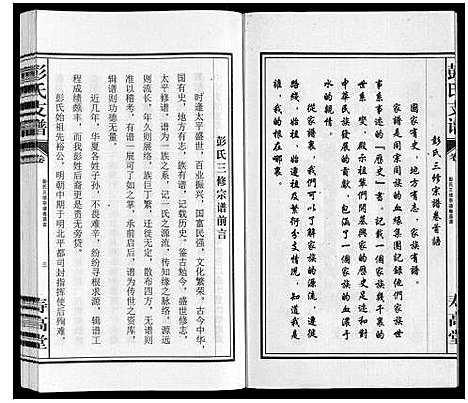 彭氏支谱
卷
寿高堂
彭氏三修宗谱卷首语
国家有史，地方有志，家族有谱。
家谱是同宗同族的血缘集团记录他们家族世
事系事迹的“历史”书，记载一个家族几千里的
世系，变，殿示祖辈们英勇开发的历史足迹和对
中华民族发展的贡献，包涵了一个家族的血浓于
水的亲情。
从家谱里，我们可以了解家族的源流，迁徙
路线，始祖长相，以及浩瀚历史文情况，知道
我的根在哪里。
彭氏三修宗谱前言
时逢太平盛世，百业振兴，国富民强，文化繁荣，古今中华，
国有史，地方有志，族有谱。记载历史，鉴古勉今，盛世修志，
太平修谱，谱为一族之系，记一氏之源流，传知缘之脉络，源远
则流长，年久则展络，族巨丁繁，迁徙无定，散布四方，无谱则
准以稽考，有谱一展可了如之掌。承前启后，谱为传世之资库，
辑谱则功德无量。
近几年，华夏各姓子孙，不畏艰辛，纷纷寻根求源，辑谱工
程成绩颇丰，而我彭姓后裔更是责无旁贷。
彭氏始祖先裕公，明朝中期于明北平都司封指挥使后殉难，
彭氏支谱
卷
彭氏三修宗谱卷首言
二
寿高堂